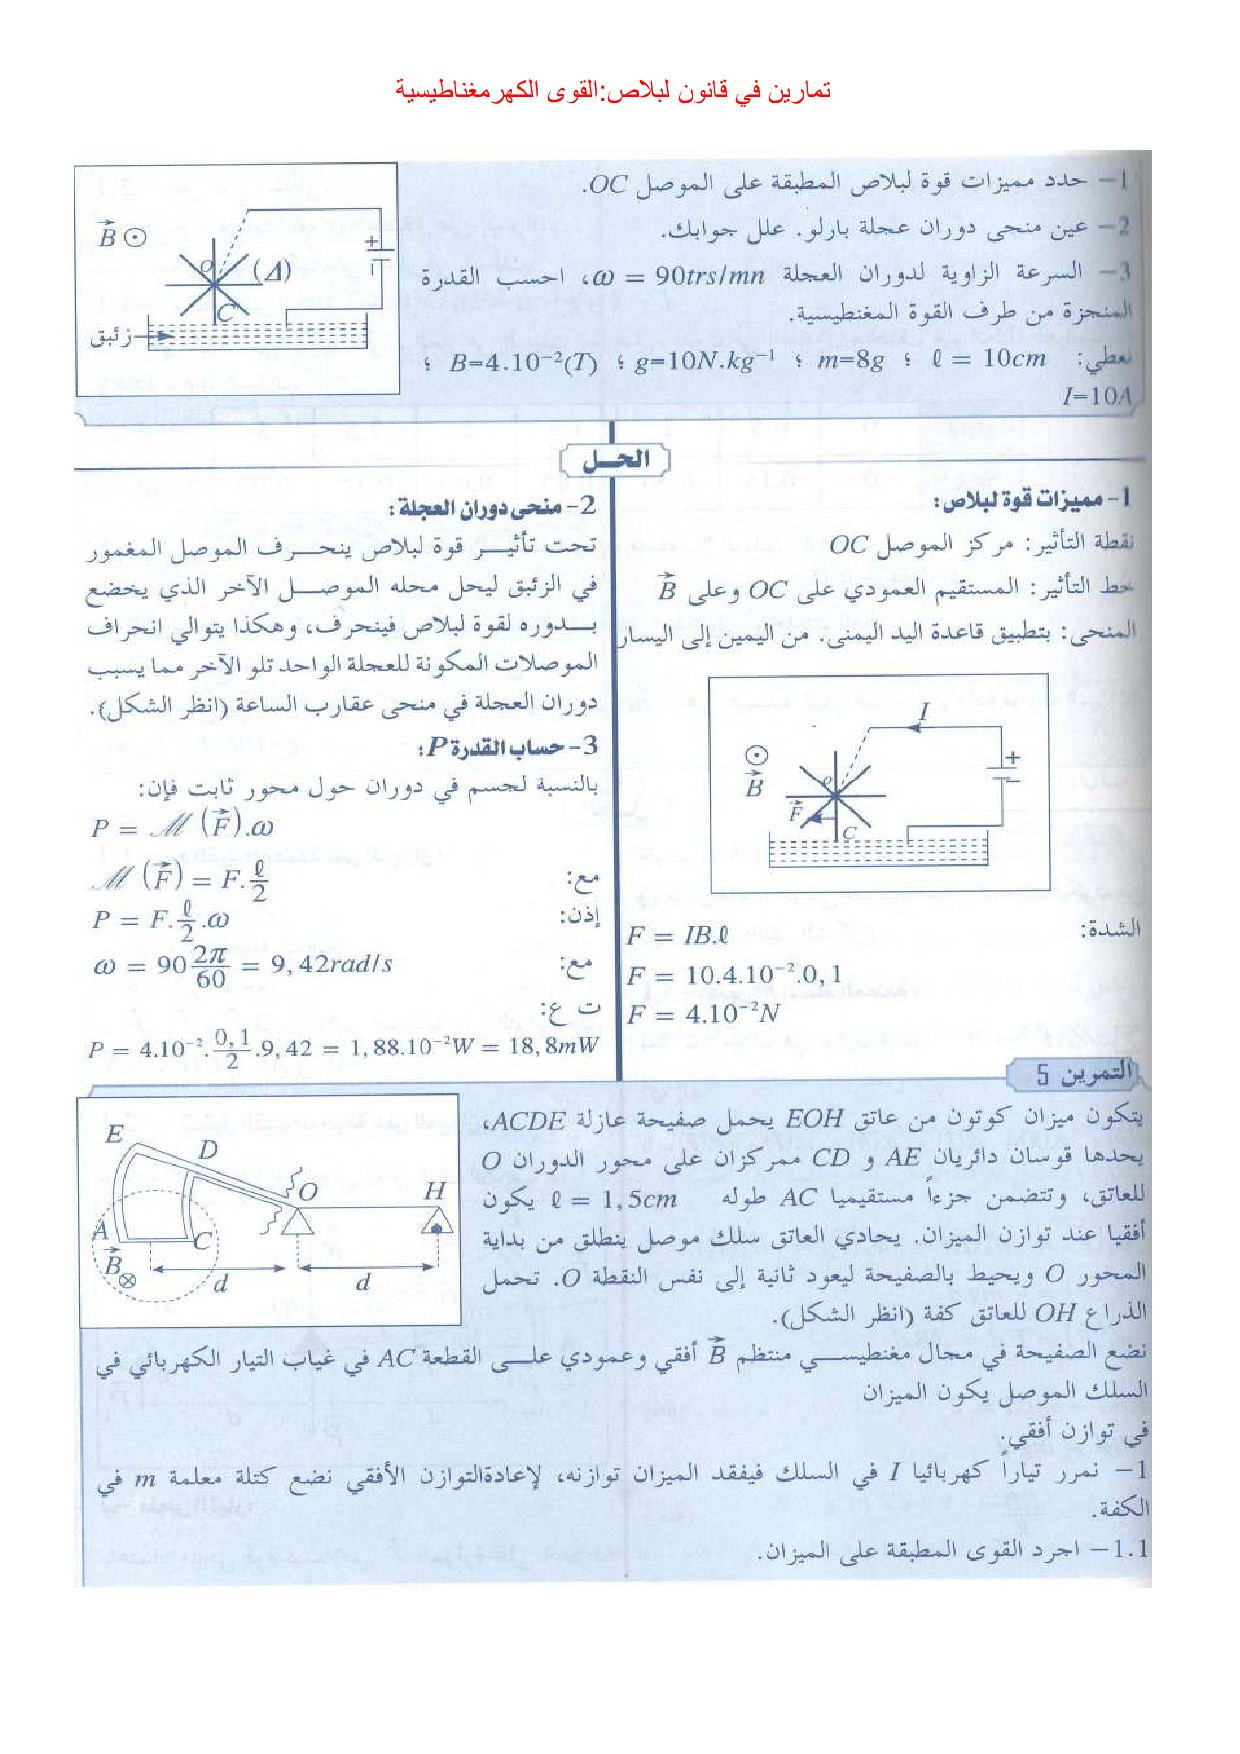 تمارين في قانون لبلاص:القوى الكهرمغناطيسية
1- حدد مميزات قوة لبلاص المطبقة على الموصل OC.
2- عين منحى دوران عجلة بارلو. علل جوابك.
3- السرعة الزاوية لدوران العجلة ω = 90trs/mn، احسب القدرة
المنجزة من طرف القوة المغنطيسية.
نعطي: ℓ = 10cm ؛ m=8g ؛ g=10N.kg⁻¹ ؛ B=4.10⁻²(T) ؛
I=10A
B⃗ ⊙
O
(Δ)
C
+
زئبق
الحـل
1- مميزات قوة لبلاص:
نقطة التأثير: مركز الموصل OC
خط التأثير: المستقيم العمودي على OC وعلى B⃗
المنحى: بتطبيق قاعدة اليد اليمنى. من اليمين إلى اليسار
I
⊙
B⃗
F⃗
C
+
الشدة:
F = IB.ℓ
F = 10.4.10⁻².0,1
F = 4.10⁻²N
2- منحى دوران العجلة:
تحت تأثير قوة لبلاص ينحرف الموصل المغمور
في الزئبق ليحل محله الموصل الآخر الذي يخضع
بدوره لقوة لبلاص فينحرف، وهكذا يتوالي انحراف
الموصلات المكونة للعجلة الواحد تلو الآخر مما يسبب
دوران العجلة في منحى عقارب الساعة (انظر الشكل).
3- حساب القدرة P:
بالنسبة لجسم في دوران حول محور ثابت فإن:
P = ℳ (F⃗).ω
مع: ℳ (F⃗) = F.ℓ/2
إذن: P = F.ℓ/2.ω
مع: ω = 90 2π/60 = 9,42rad/s
ت ع:
P = 4.10⁻².0,1/2.9,42 = 1,88.10⁻²W = 18,8mW
التمرين 5
يتكون ميزان كوتون من عاتق EOH يحمل صفيحة عازلة ACDE،
يحدها قوسان دائريان AE و CD ممركزان على محور الدوران O
للعاتق، وتتضمن جزءاً مستقيميا AC طوله ℓ = 1,5cm يكون
أفقيا عند توازن الميزان. يحادي العاتق سلك موصل ينطلق من بداية
المحور O ويحيط بالصفيحة ليعود ثانية إلى نفس النقطة O. تحمل
الذراع OH للعاتق كفة (انظر الشكل).
E
D
O
H
A
C
B⃗ ⊗
d
d
نضع الصفيحة في مجال مغنطيسي منتظم B⃗ أفقي وعمودي على القطعة AC في غياب التيار الكهربائي في
السلك الموصل يكون الميزان
في توازن أفقي.
1- نمرر تياراً كهربائيا I في السلك فيفقد الميزان توازنه، لإعادةالتوازن الأفقي نضع كتلة معلمة m في
الكفة.
1.1- اجرد القوى المطبقة على الميزان.